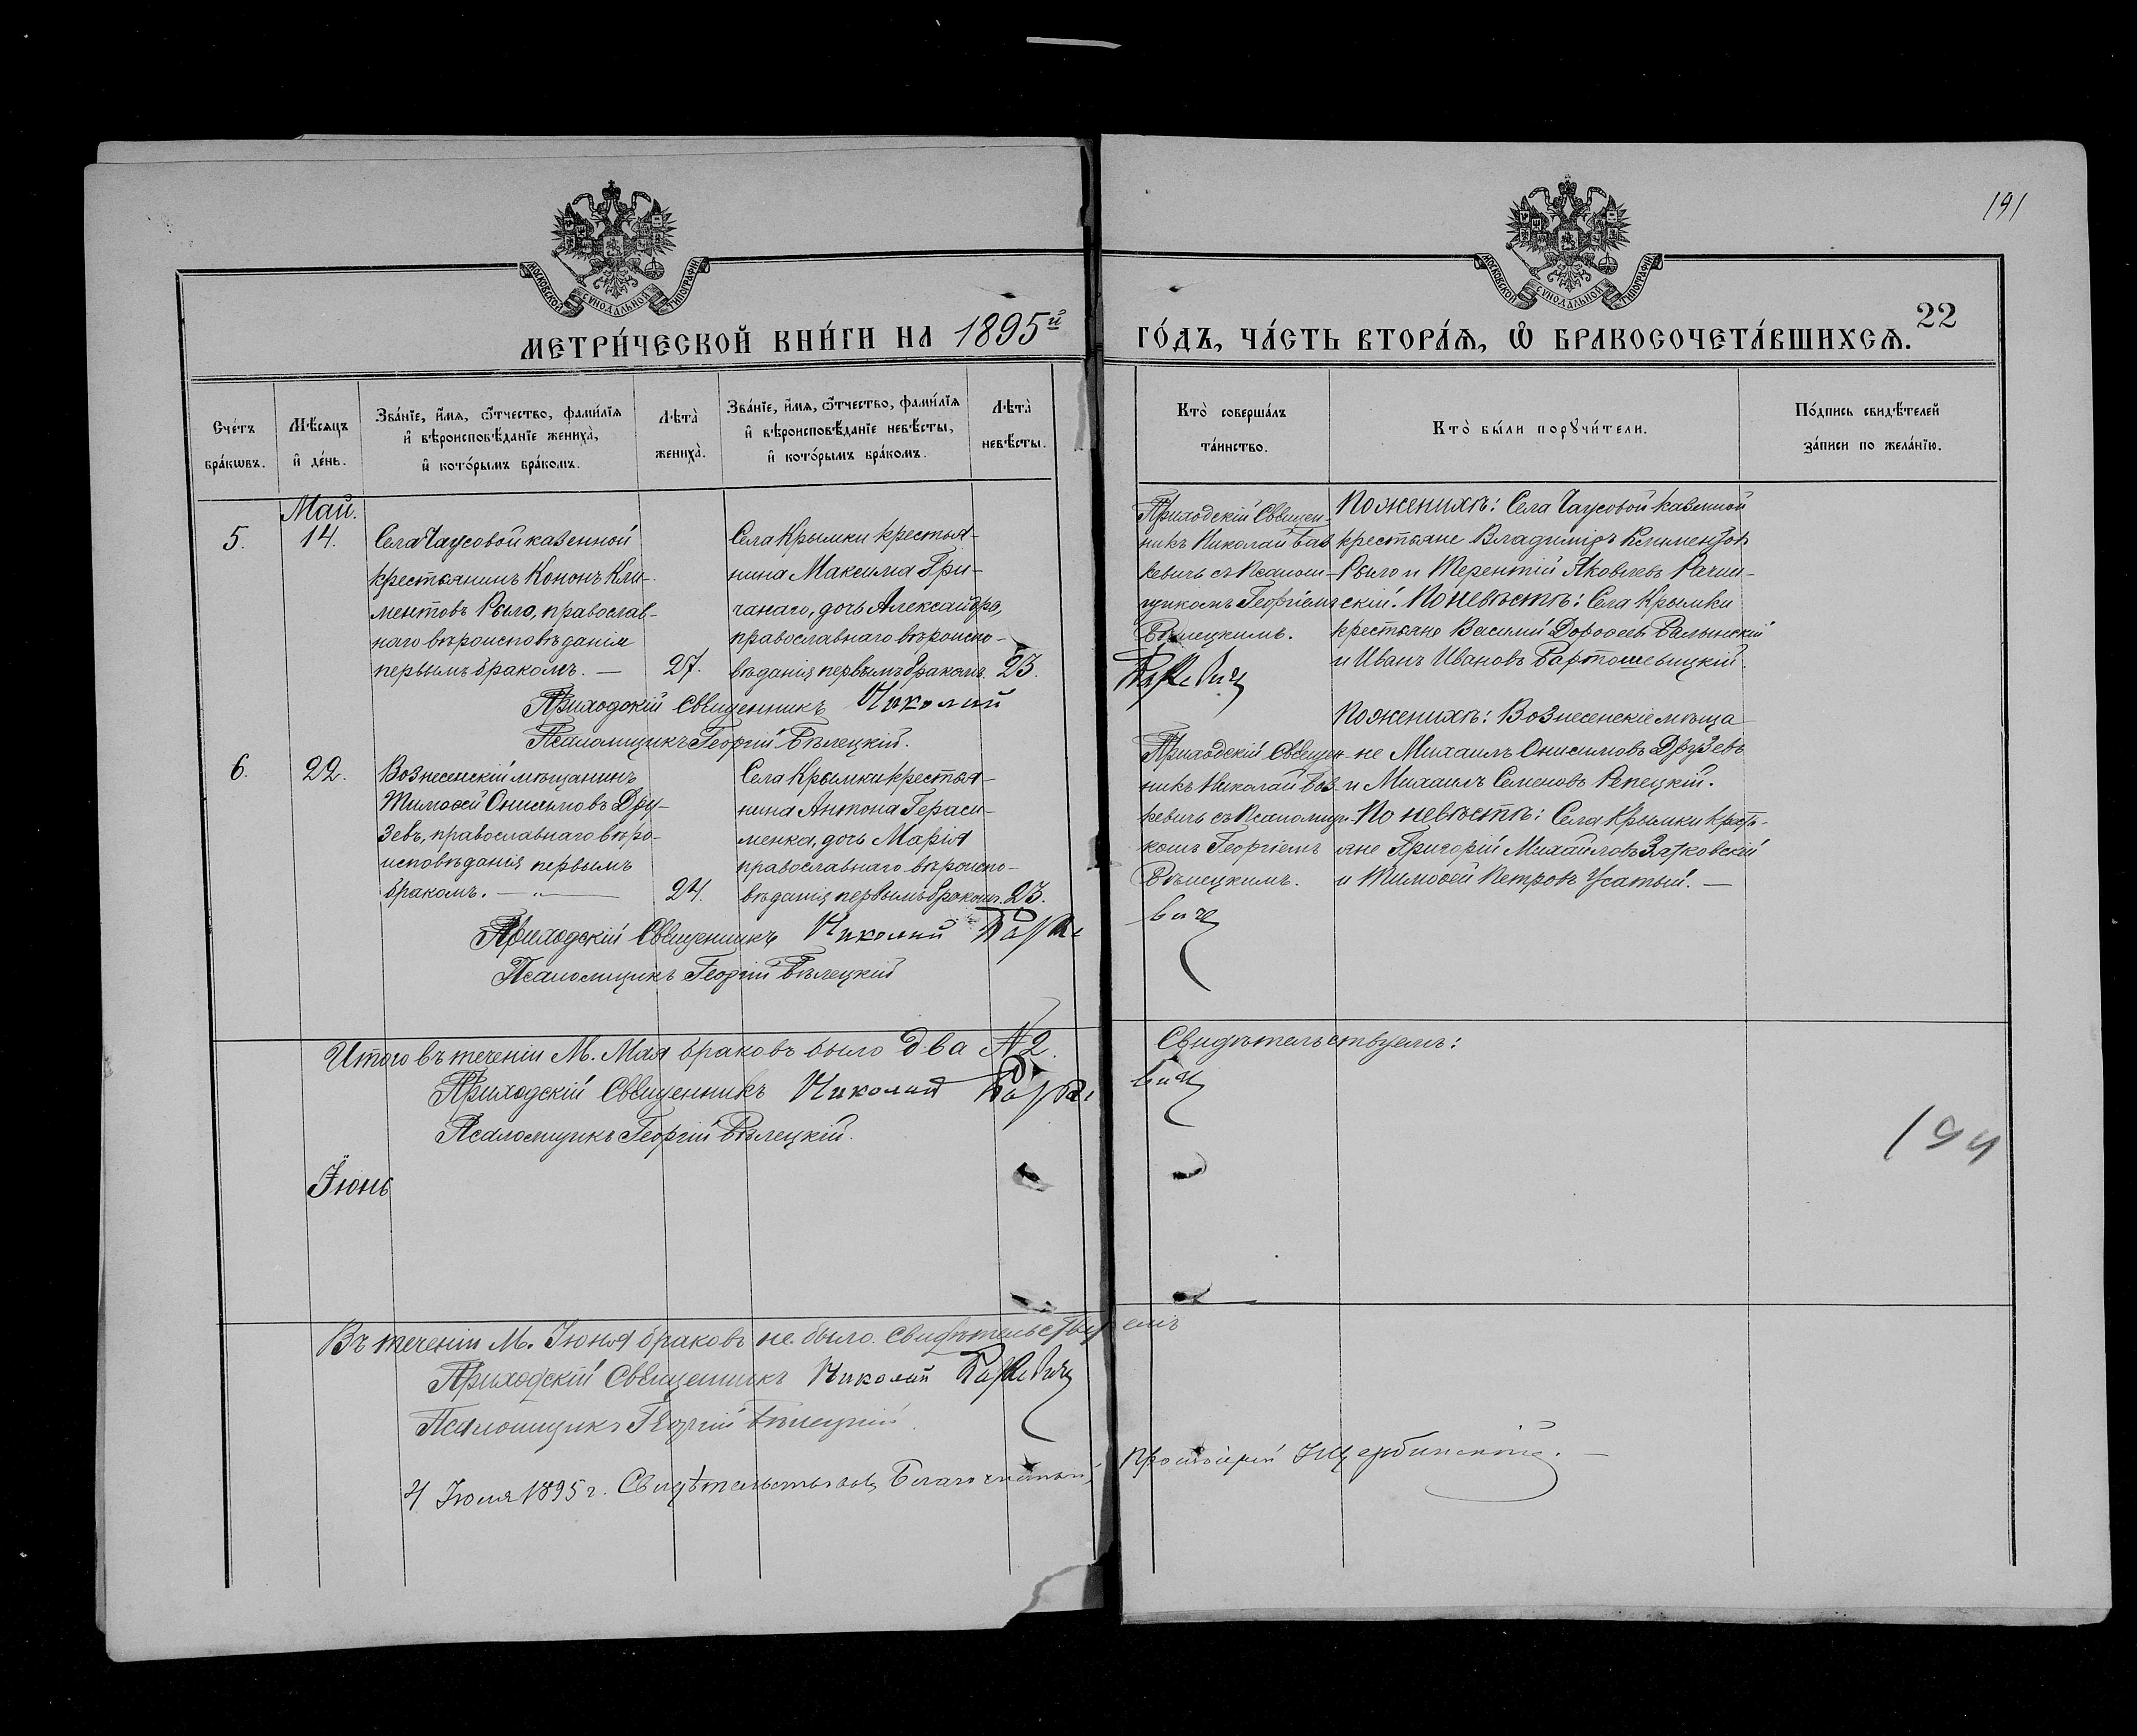 191
МОСКОВСКОЙ СѴНОДАЛЬНОЙ ТИПОГРАФІИ
МОСКОВСКОЙ СѴНОДАЛЬНОЙ ТИПОГРАФІИ
22
МЕТРИ́ЧЕСКОЙ КНИ́ГИ НА 1895й
ГО́ДЪ, ЧА́СТЬ ВТОРА́Ѧ, Ѽ БРАКОСОЧЕТА́ВШИХСѦ.
Сче́тъ
бра́кѡвъ.
Мѣ́сѧцъ
и҆ де́нь.
Зва́нїе, и҆́мѧ, ѻ҆́тчество, фами́лїѧ
и҆ вѣроисповѣ́данїе жениха̀,
и҆ кото́рымъ бра́комъ.
Лѣта̀
жениха̀.
Зва́нїе, и҆́мѧ, ѻ҆́тчество, фами́лїѧ
и҆ вѣроисповѣ́данїе невѣ́сты,
и҆ кото́рымъ бра́комъ.
Лѣта̀
невѣ́сты.
Кто̀ соверша́лъ
та́инство.
Кто̀ бы́ли порꙋчи́тели.
По́дпись свидѣ́телей
за́писи по жела́нїю.
Май.
5.
14.
Села Чаусовой казенной
крестьянинъ Кононъ Кли-
ментовъ Рыло, православ-
наго вѣроисповѣданія
первымъ бракомъ. —
27.
Села Крымки крестья-
нина Максима Гри-
чанаго, дочь Александра,
православнаго вѣроиспо-
вѣданія первымъ бракомъ.
23.
Приходскій Священ-
никъ Николай
кевичъ съ Псалом-
щикомъ Георгіемъ
Бѣлецкимъ.
По женихѣ: Села Чаусовой казенной
крестьяне Владиміръ Климентов
Рыло и Терентій Яковлевъ
скій. По невѣстѣ: Села Крымки
крестьяне Василій Дороѳеевъ Валынскій
и Иванъ Ивановъ Бартошевицкій.
Приходскій Священникъ Николай
Псаломщикъ Георгій Бѣлецкій.
6.
22.
Вознесенскій мѣщанинъ
Тимоѳей Онисимовъ Дру-
зевъ, православнаго вѣро-
исповѣданія первымъ
бракомъ. — „ —
24.
Села Крымки крестья-
нина Антона Гераси-
менка, дочь Марія
православнаго вѣроиспо-
вѣданія первымъ бракомъ.
23.
Приходскій Священ-
никъ Николай
кевичъ съ Псаломщи-
комъ Георгіемъ
Бѣлецкимъ.
По женихѣ: Вознесенскіе мѣща
не Михаилъ Онисимовъ Друзевъ
и Михаилъ Семеновъ Репецкій.
По невѣстѣ: Села Крымки кресть-
яне Григорій Михайловъ Зятковскій
и Тимоѳей Петровъ Усатый. —
Приходскій Священникъ Николай
Псаломщикъ Георгій Бѣлецкій
Итого въ теченіи М. Мая браковъ было два № 2.
Свидѣтельствуемъ:
Приходскій Священникъ Николай
Псаломщикъ Георгій Бѣлецкій.
194
Іюнь
Въ теченіи М. Іюня браковъ не было. Свидѣтельствуемъ
Приходскій Священникъ Николай
Псаломщикъ Георгій Бѣлецкій.
4 Іюля 1895 г. Свидѣтельствовалъ Благочинный,
Протоіерей Щербинскій. —